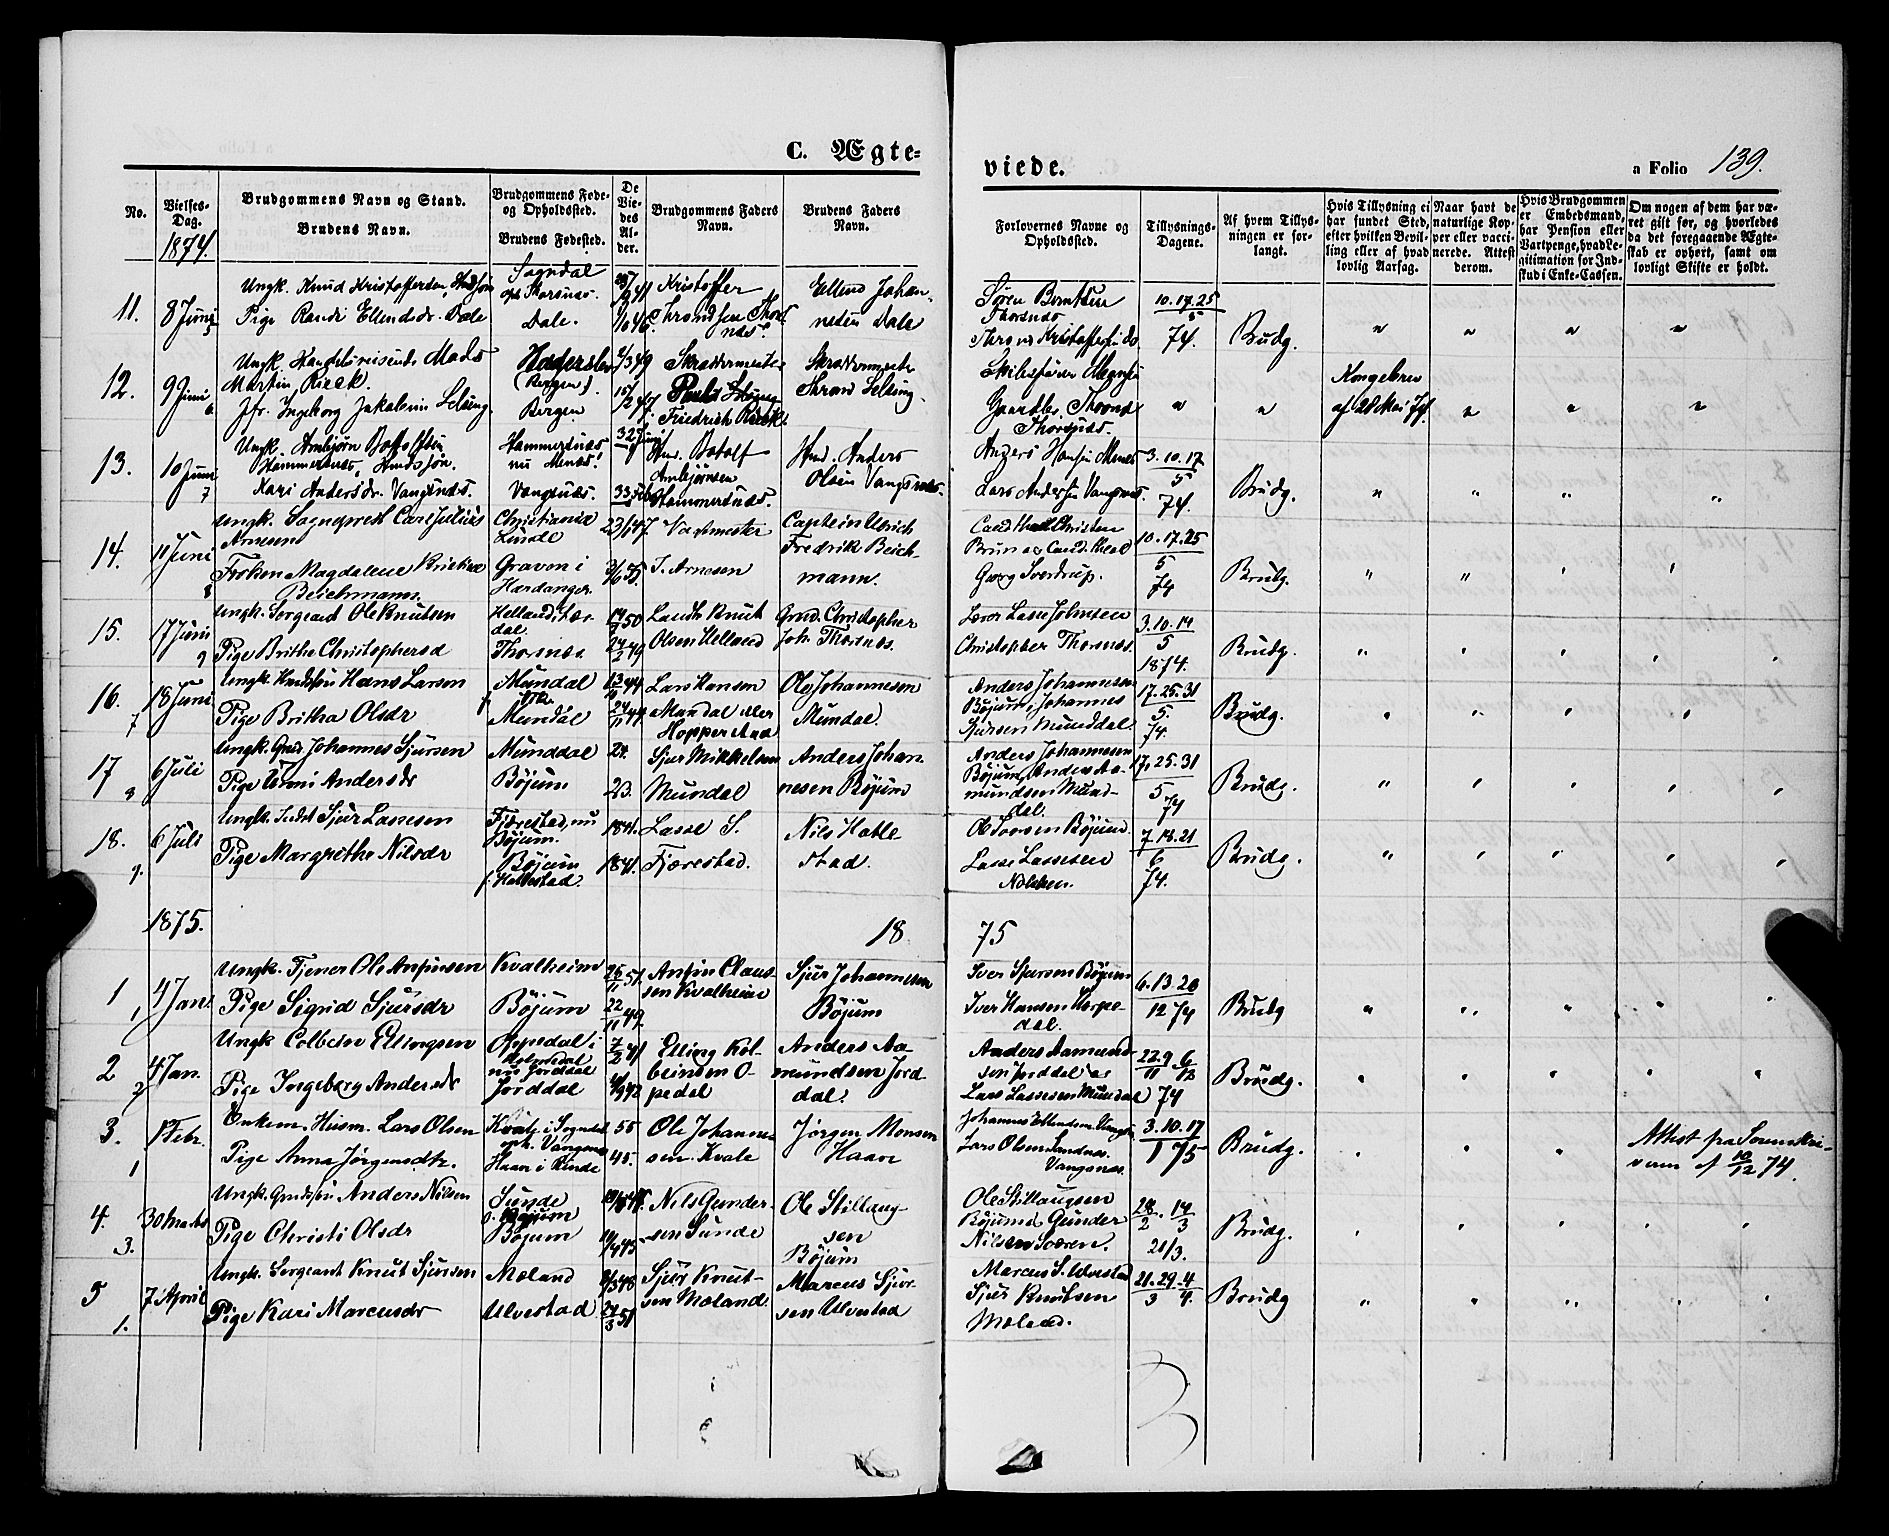 C. Ægte-
viede.
a Folio 139.
No.
Vielses-Dag.
1874.
Brudgommens Navn og Stand.
Brudens Navn.
Brudgommens Føde- og Opholdsted.
Brudens Fødested.
De Viedes Alder.
Brudgommens Faders Navn.
Brudens Faders Navn.
Forlovernes Navne og Opholdsted.
Tillysnings-Dagene.
Af hvem Tillysningen er forlangt.
Hvis Tillysning ei har fundet Sted, efter hvilken Bevilling eller af hvad lovlig Aarsag.
Naar havt de naturlige Kopper eller vaccinerede. Attest derom.
Hvis Brudgommen er Embedsmand, har Pension eller Vartpenge, hvad Legitimation for Indskud i Enke-Cassen.
Om nogen af dem har været gift før, og hvorledes da det foregaaende Ægteskab er ophørt, samt om lovligt Skifte er holdt.
11. 8 Juni
Ungk. Knud Kristoffersen
Pige Randi Ellendsdr. Dale
Sogndal
Thorsnæs.
Dale.
Kristoffer
Throndsen Thorsnæs.
Ellend Johannesen Dale
Søren Berntsen
Thorsnæs
10. 17. 25
5
74.
Brudg.
12. 9 Juni
6
Ungk. Handelsreisende Mads
Martin Rieck.
Jfr. Ingeborg Jakobine Selseng.
Haderslev
(Bergen).
Bergen
Skræddermester
Friedrich Rieck.
Skræddermester
Selseng
Thorsnæs.
Kongebrev
af 28 Mai 74.
13. 10 Juni
7
Ungk. Arnbjørn Botolfsen
Hammersnæs,
Kari Andersdr. Vangsnæs.
Hammersnæs
nu Menæs!
Vangsnæs.
Botolf
Arnbjørnsen
Hammersnæs.
Anders
Olsen Vangsnæs.
Anders Hansen Menes
Lars Andersen Vangsnæs
3. 10. 17
5
74.
Brudg.
14. 11 Juni
8
Ungk. Sogneprest Carl Julius
Arnesen
Frøken Magdalene Kristine
Beichmann.
Christiania
Lunde
Graven i
Hardanger.
23/1 47
Vagtmester
J. Arnesen
Captein Ulrich
Fredrik Beichmann.
Cand theol Christen
Brun og Cand. theol
Georg Sverdrup.
10. 17. 25
5
74
Brudg.
15. 17 Juni
9
Ungk. Sergeant Ole Knutsen
Pige Brithe Christophersd
Helland i Lærdal.
Thorsnæs
Landh. Knut
Olsen Helland
Grud. Christopher
Joh. Thorsnæs.
Lærer Lasse Johnsen
Christopher Thorsnæs.
3. 10. 14
5
1874.
Brudg.
16. 18 Juni
7
Ungk. Hans Larsen
Pige Britha Olsdr
Mundal
Mundal
Lars Hansen
Mundal eller
Hopperstad
Ole Johannesen
Mundal.
Anders Johannesen
Bøjum, Johannes
Sjursen Munddal.
17. 25. 31
5.
74.
Brudg.
17 6 Juli
8
Ungk. Johannes Sjursen
Pige Anni Andersdr
Munddal
Bøjum
24.
23.
Sjur Mikkelsen
Mundal
Anders Johannesen Bøjum
Anders Johannesen
Bøjum, Anders Aamundsen Munddal.
17. 25. 31
5
74
Brudg.
18. 6 Juli
9.
Ungk. Sjur Lassesen
Pige Margrithe Nilsdr
Fjærestad, nu
Bøjum.
Bøjum
f. Hattestad.
1841.
1841.
Lasse S.
Fjærestad.
Nils Hattestad.
Ole Bøjum.
Lasse Lassesen
7. 18. 21
6
74.
Brudg.
1875.
18 75
1 4 Jan.
1
Ungk. Tjener Ole Anfinsen
Pige Sigrid Sjursdr
Kvalheim
Bøjum
25/11 51.
22/11 49.
Anfin Claussen Kvalheim
Sjur Johannesen
Bøjum
Iver Sjursen Bøjum
Iver Hansen
6. 13. 20
12 74
Brudg
2 4 Jan.
2
Ungk Colbein Ellingsen
Pige Ingeborg Andersdr
Oppedal i
Holmedal
nu Jorddal
Jorddal
Elling Kolbeinsen Opedal
Anders Aamundsen Jorddal.
Anders Aamundsen Jorddal og
Lars Lassesen Mundal
22. 9 6
11 12
74
Brudg.
3. 1 Febr.
1
Enkem. Husm. Lars Olsen
Pige Anna Jørgensdtr.
Kvale i Sogndal
oph. Vangsnæs
Haave i Rinde
55
45.
Ole Johannessen Kvale
Jørgen Monsen
Haave
Johannes Ellendsen
Lars Olsen
Vangsnæs.
3. 10. 17
1 75
Brudg.
Attest fra Sorenskriveren af 10/12 74.
4. 30 Marts
3.
Ungk. Anders Nilsen
Pige Christi Olsdr
Sunde
Bøjum
Bøjum
Nils Gundersen Sunde
Ole Stillaugsen
Bøjum
Ole Stillaugsen
Bøjum Gunder
Nilsen Sværen.
28/2. 14/3
21/3.
Brudg.
5 7 April
1.
Ungk. Sergeant Knut Sjursen
Pige Kari Marcusdr
Moland
Ulvestad
27/3 51
Sjur Knutsen Moland.
Marcus Sjursen Ulvestad
Marcus S. Ulvestad
Sjur Knutsen
Moland.
21. 29. 4
3 4.
Brudg